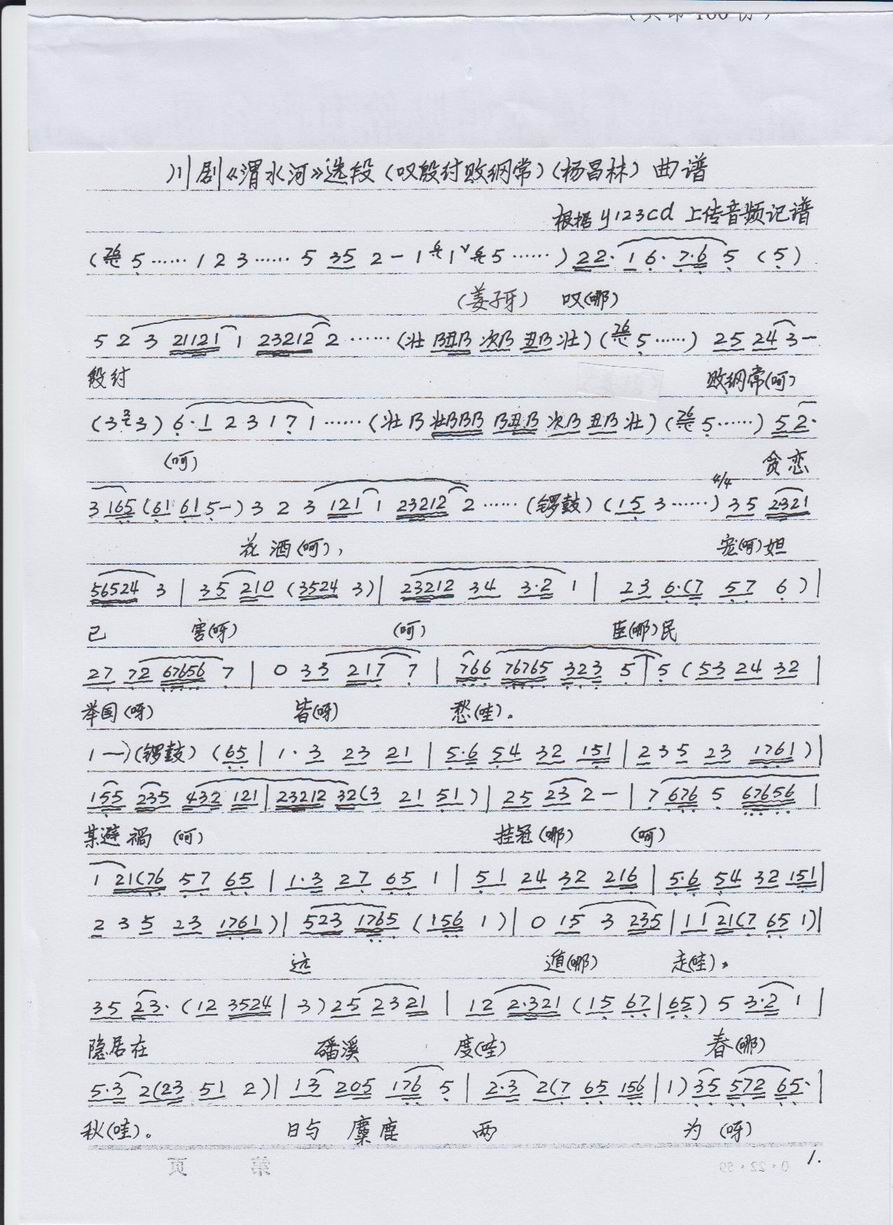 川剧《渭水河》选段(叹殷纣败纲常)(杨昌林)曲谱
根据y123cd上传音频记谱
5…… 1 2 3…… 5 35 2 — 1 1 5……) 22· 1 6· 7·6 5 (5)
(姜子牙) 叹(哪)
5 2 3 21121 1 23212 2……(壮 丑 次 丑 壮)( 5……) 25 24 3 —
殷纣 败纲常(呵)
(3 3) 6·1 2 3 1 7 1……(壮 壮 丑 次 丑 壮)( 5……) 5 2·
(呵) 贪恋
3 165 (61 61 5—) 3 2 3 121 1 23212 2……(锣鼓)(15 3……) 4/4 35 2321
花酒(呵), 宠(呵)妲
56524 3 | 35 210 (3524 3) | 23212 34 3·2 1 | 23 6·(7 57 6) |
己 害(呀) (呵) 臣(哪)民
27 72 67656 7 | 0 33 217 7 | 766 76765 323 5 | 5 (53 24 32 |
举国(呀) 皆(呀) 愁(哇)。
1 —)(锣鼓)(65 | 1·3 23 21 | 5·6 54 32 151 | 235 23 1761) |
155 235 432 121 | 23212 32(3 21 51) | 25 23 2 — | 7 676 5 67656 |
某避祸(呵) 挂冠(哪) (呵)
1 21(76 57 65 | 1·3 27 65 1 | 51 24 32 216 | 5·6 54 32 151 |
2 3 5 23 1761) | 523 1765 (156 1) | 0 15 3 235 | 11 21(7 65 1) |
远 遁(哪) 走(哇),
35 23· (12 3524 | 3) 25 2321 | 12 2·321 (15 67 | 65) 5 3·2 1 |
隐居在 磻溪 度(哇) 春(哪)
5·3 2(23 51 2) | 13 205 176 5 | 2·3 2(7 65 156 | 1) 35 572 65· |
秋(哇)。 日与 麋鹿 两 为(呀)
1.